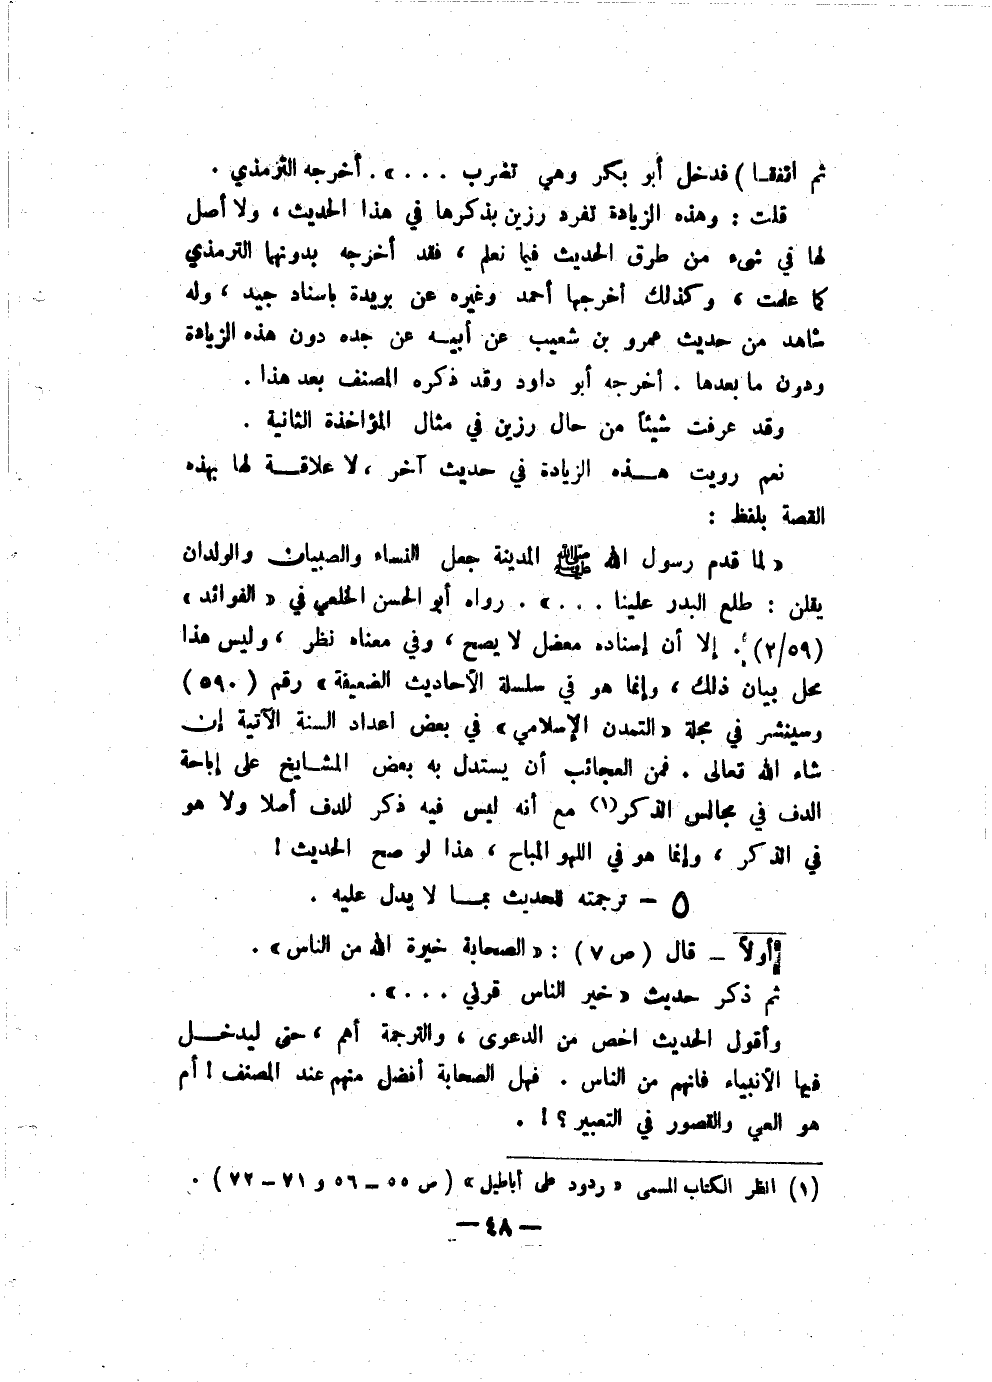 ثم اتفقـا ) فدخل أبو بكر وهي تضرب . . . » . أخرجه الترمذي .
قلت : وهذه الزيادة تفرد رزين بذكرها في هذا الحديث ، ولا أصل
لها في شيء من طرق الحديث فيما نعلم ، فقد أخرجه بدونها الترمذي
كما علمت ، وكذلك أخرجها أحمد وغيره عن بريدة باسناد جيد ، وله
شاهد من حديث عمرو بن شعيب عن أبيـه عن جده دون هذه الزيادة
ودون ما بعدها . أخرجه أبو داود وقد ذكره المصنف بعد هذا .
وقد عرفت شيئاً من حال رزين في مثال المؤاخذة الثانية .
نعم رويت هـذه الزيادة في حديث آخر ، لا علاقـة لها بهذه
القصة بلفظ :
« لما قدم رسول الله ﷺ المدينة جعل النساء والصبيان والولدان
يقلن : طلع البدر علينا . . . » . رواه أبو الحسن الخلعي في « الفوائد »
(٢/٥٩) . إلا أن إسناده معضل لا يصح ، وفي معناه نظر ، وليس هذا
محل بيان ذلك ، وإنما هو في سلسلة الأحاديث الضعيفة » رقم ( ٥٩٠ )
وسينشر في مجلة « التمدن الإسلامي » في بعض اعداد السنة الآتية إن
شاء الله تعالى . فمن العجائب أن يستدل به بعض المشـايخ على إباحة
الدف في مجالس الذكر(١) مع أنه ليس فيه ذكر للدف أصلا ولا هو
في الذكر ، وإنما هو في اللهو المباح ، هذا لو صح الحديث !
٥ – ترجمته للحديث بمـا لا يدل عليه .
أولاً – قال ( ص ٧ ) : « الصحابة خيرة الله من الناس » .
ثم ذكر حديث « خير الناس قرني . . . » .
وأقول الحديث اخص من الدعوى ، والترجمة أهم ، حتى ليدخـل
فيها الأنبياء فانهم من الناس . فهل الصحابة أفضل منهم عند المصنف ! أم
هو العي والقصور في التعبير ؟ ! .
(١) انظر الكتاب المسمى « ردود على أباطيل » ( ص ٥٥ – ٥٦ و ٧١ – ٧٢ ) .
– ٤٨ –